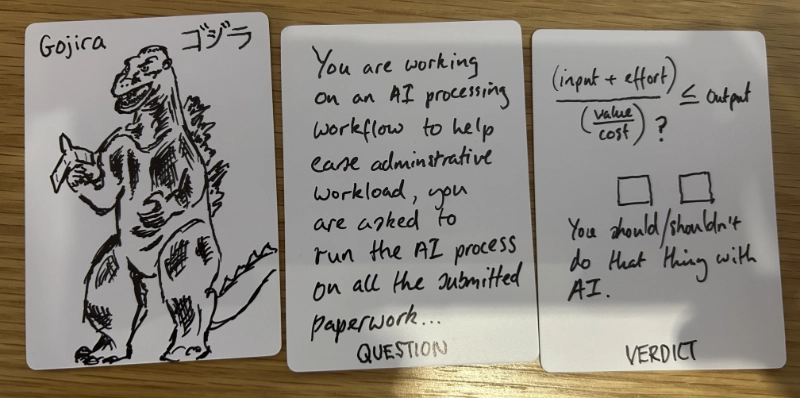 Gojira ゴジラ
You are working
on an AI processing
workflow to help
ease adminstrative
workload, you
are asked to
run the AI process
on all the submitted
paperwork...
QUESTION
(input + effort)
(value
cost) ?
≤ output
You should/shouldn't
do that thing with
AI.
VERDICT